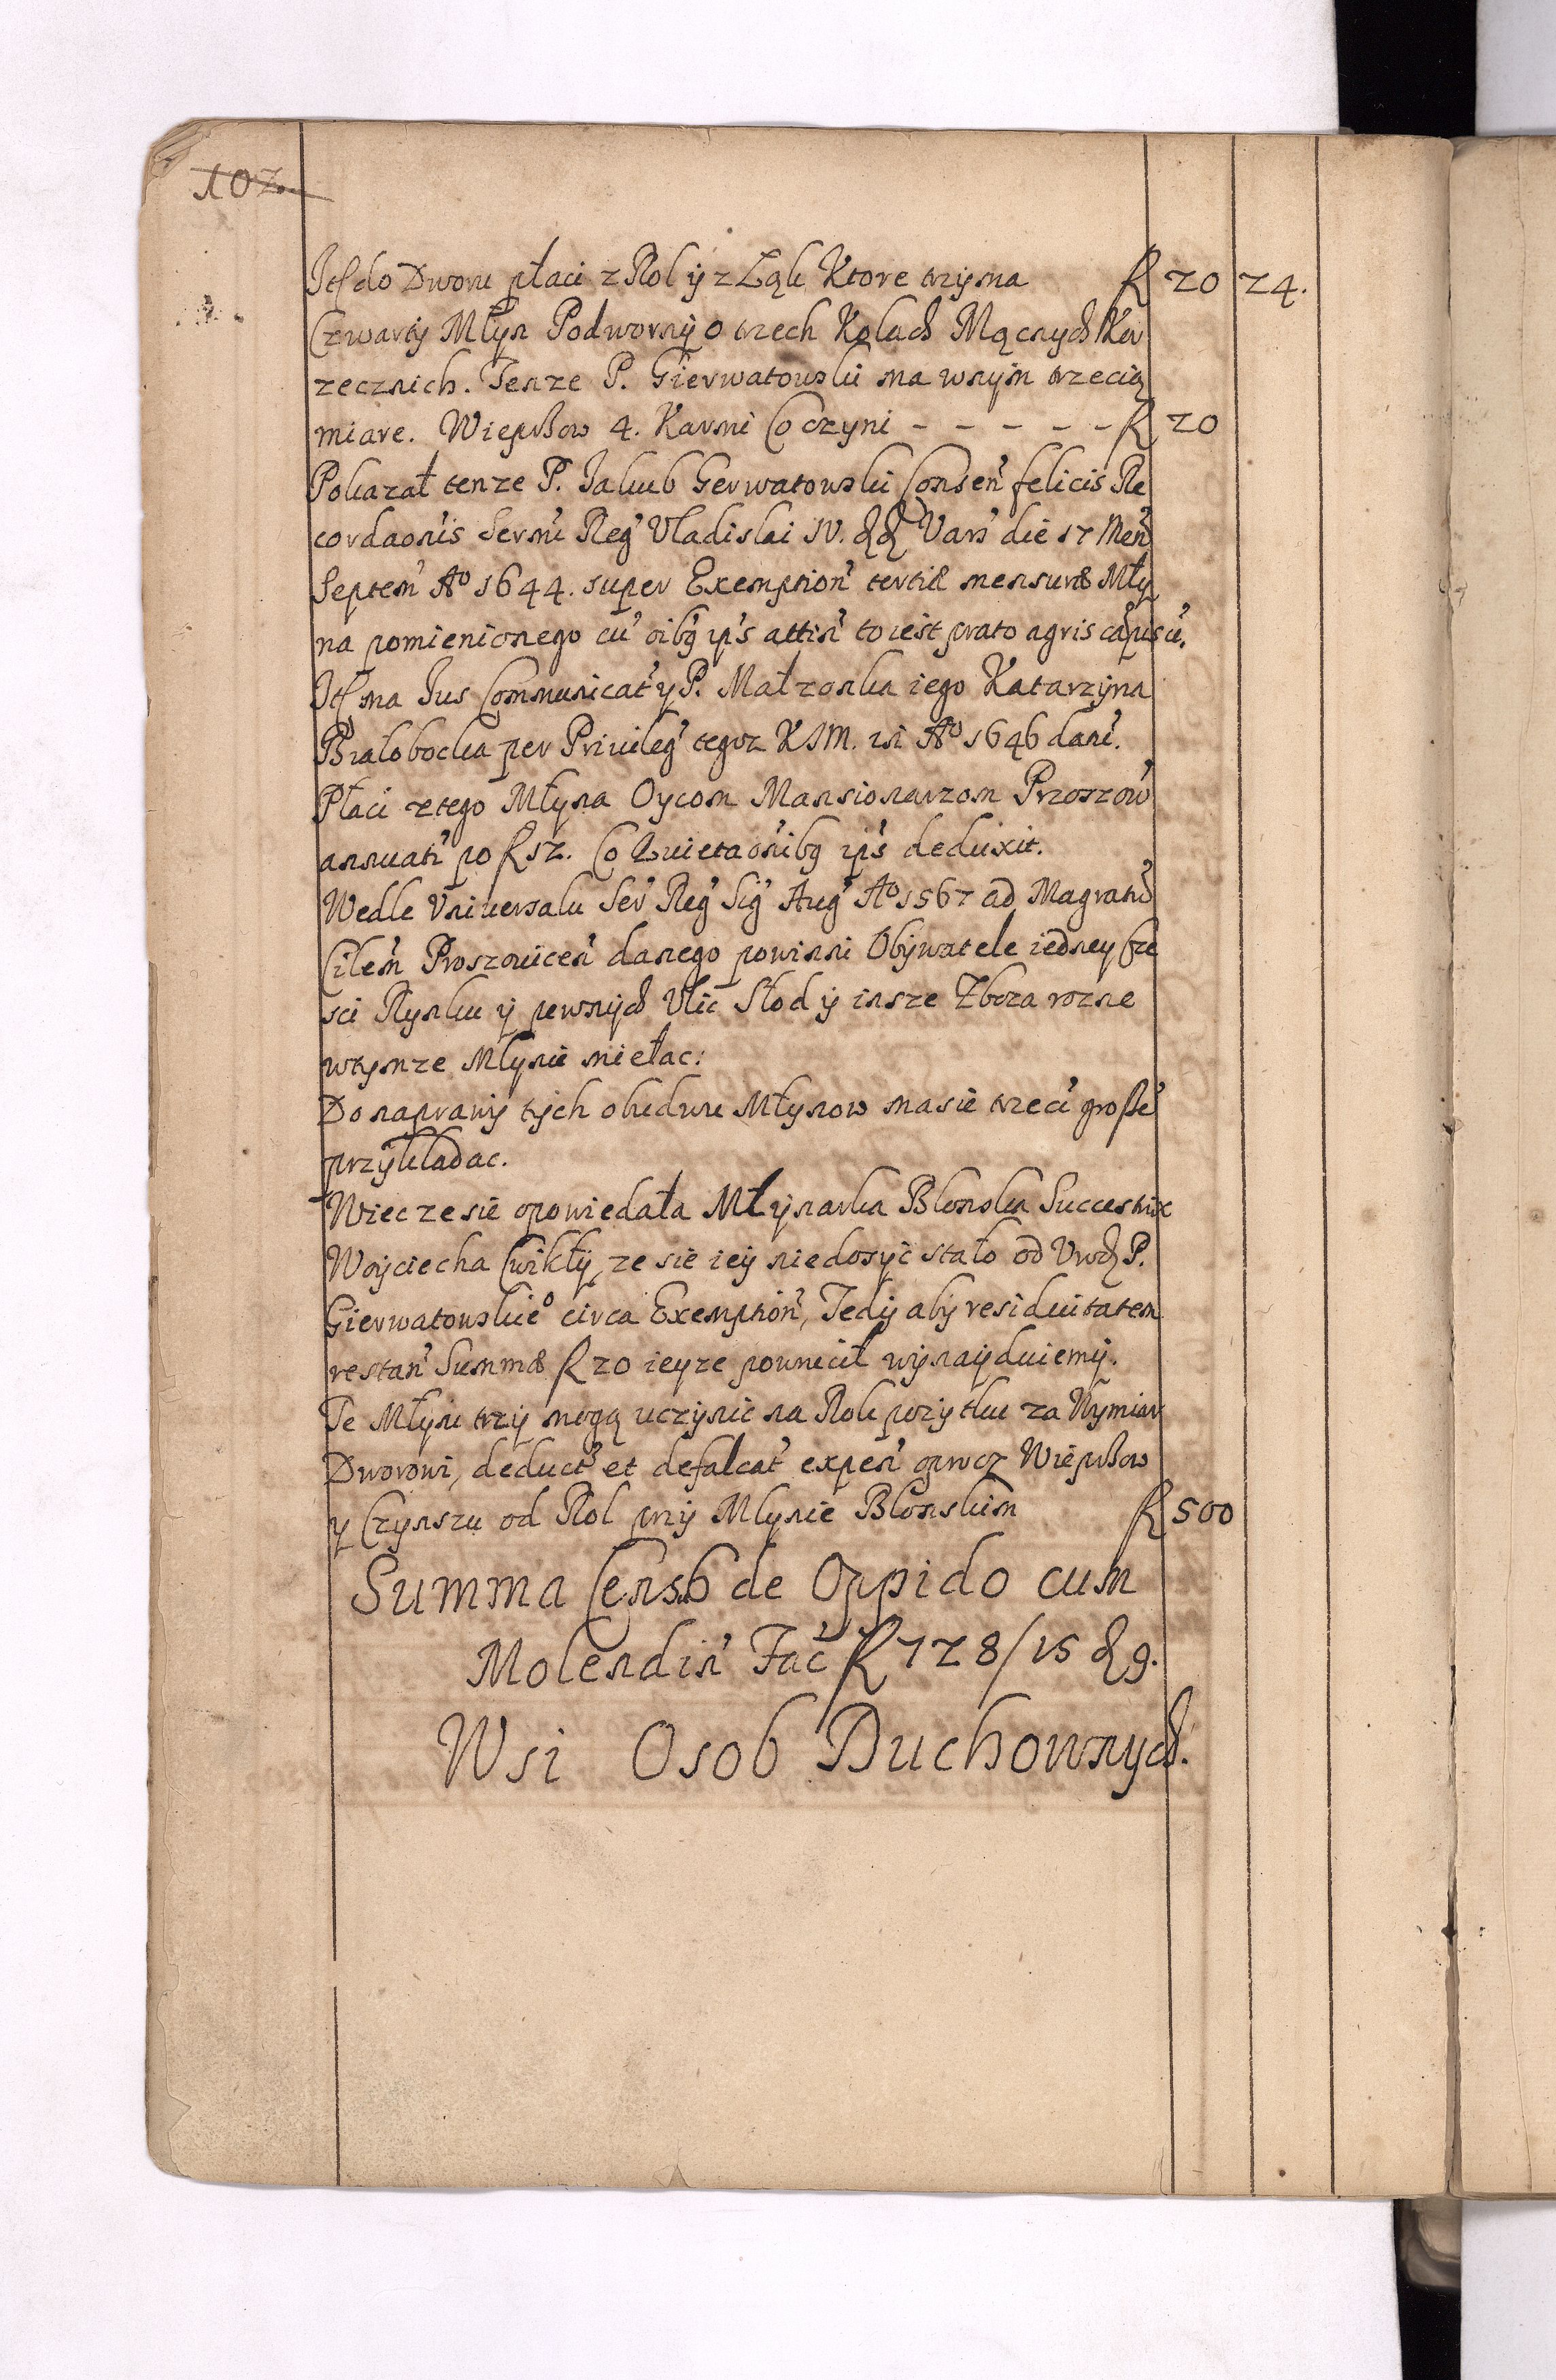 102.
Itē do Dworu płaci z Rol ÿ z Ląk Ktore trzÿma f 20 24.
Czwartÿ Młÿn Podwornÿ o trzech Kołach Mącznÿch Ko
rzecznich. Tenze P. Gierwatowski ma wnÿm trzecią
miare. Wieprzow 4. Karmi Co czyni - - - - - f 20
Pokazał tenze P. Jakub Gerwatowski Consen̄ felicis Re
cordaōnis Sermi Reg Vladislai IV. Vars die 17 Men
Septem A° 1644. super Exemption tertiæ mensuræ Mły
na pomienionego cu oibg ips attin to iest prato agris
Itē ma Ius Communicat y P. Małzonka iego Katarzÿna
Białobocka per Priuileg tegoz KJM. in A° 1646 dane.
Płaci ztego Młyna Oycom Mansionarzom Proszow
annuati po f 12. Co Quietaōnibg ips deduxit.
Wedle Vniuersału Ser Reg Sig Aug A° 1567 ad Magratu
Cilem Proszouicen danego powinni Obÿwatele iedney Cze
sci Rynku ÿ pewnÿch Vlic Słod ÿ insze Zboza rozne
wtymze Młynie miełac:
Do naprawÿ tÿch obudwu Młynow masie trzeci grosze
przÿkładac.
Wiec ze sie opowiedała Młÿnarka Blonska Succestrix
Woÿciecha Cwikłÿ, ze sie ieÿ niedosÿc stało od Vrod P.
Gierwatowskie° circa Exemption, Tedÿ abÿ residuitatem
restan Summæ f 20 ieyze powrocił wÿnaÿduiemÿ.
Te Młÿnÿ trzÿ mogą uczÿnic na Rok pozÿtku za Wymiar
Dworowi, deduct et defalcat expen oprocz Wieprzow
y Czÿnszu od Rol przÿ Mlynie Blonskim f 500
Summa Censg de Oppido cum
Molendin Fac f 728/15 9.
Wsi Osob Duchownych.